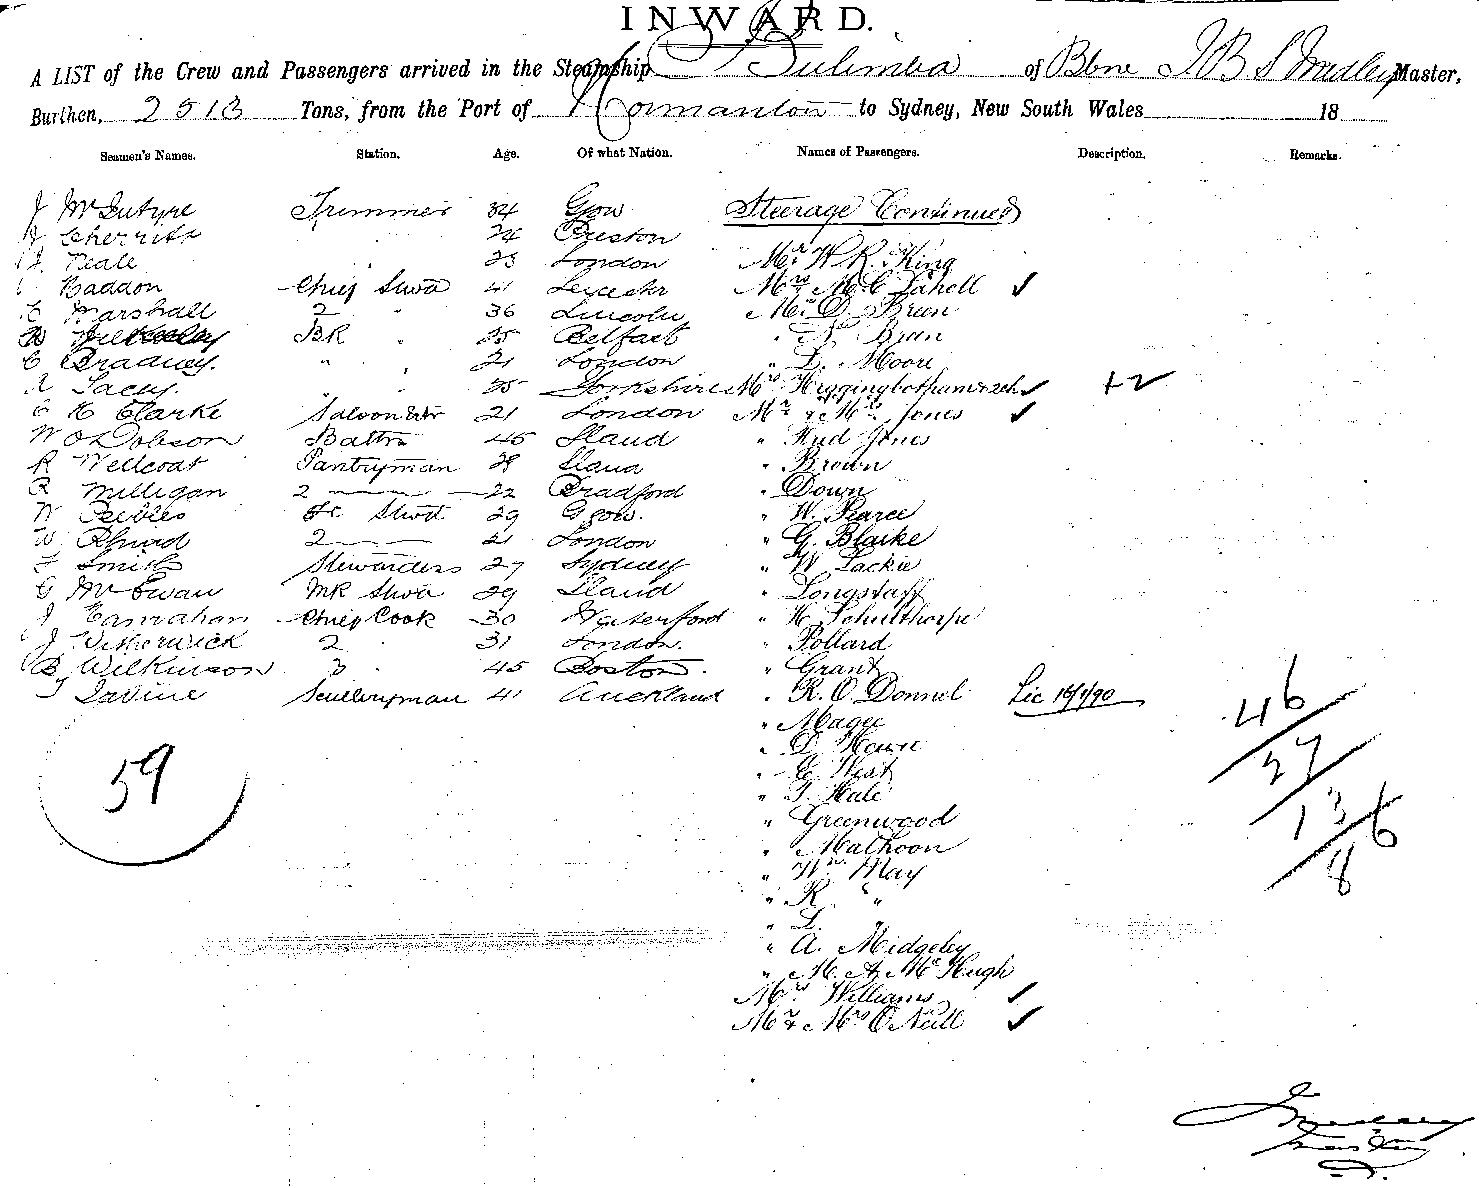 INWARD.
A LIST of the Crew and Passengers arrived in the Steamship Bulimba of Bbne J B S Smedley Master,
Burthen, 2513 Tons, from the Port of Normanton to Sydney, New South Wales 18
Seamen's Names. Station. Age. Of what Nation. Names of Passengers. Description. Remarks.
J McIntyre Trimmer 34 Ggow Steerage Continued
24 Preston
J. Neale 23 London Mr W. R. King
Baddon Chief Stwd 41 Leicester Mrs M. C. Cahell ✓
C Marshall 2 " 36 Lincoln Mr D. Breen
BR " 25 Belfast " Breen
C Bradney. " " 21 London " D. Moore
Lacey. " " 35 Yorkshire Mrs Higgingbotham & 2ch ✓ +2 ✓
C H Clarke Saloon Wtr 21 London Mr & Mrs Jones ✓
W O Dobson 45 Iland " Fred Jones
R Wellcoat Pantryman 28 Iland " Brown
R Milligan 2 — 22 Bradford " Down
W Peebles Stwd 29 Ggow. " W. Pearce
W 2 — 21 London " G. Blacke
Smith Stewardess 27 Sydney " W Lackie
G McEwan MR Stwd 29 Iland " Longstaff
J Carnahan Chief Cook 30 Waterford " H. Schulthorpe
J Witherwick 2 " 31 London. " Pollard
B Wilkinson 3 " 45 Boston. " Grant
Irvine Sculleryman 41 Auckland " R. O. Donnel Lic 15/1/90
" Magee
" D.
" C. West
" T. Hale
" Greenwood
" Malhoon
" Wm May
" R. "
" L. "
" A. Midgeley
" M. A. McHugh
Mrs Williams ✓
Mr & Mrs O'Neill ✓
59
46
27
13 6
8